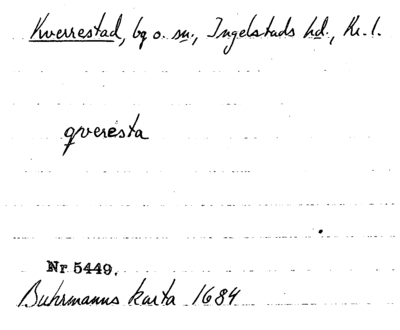 Kverrestad, by o. sn., Ingelstads hd., Kr. l.
qveresta
Nr 5449.
Buhrmanns karta 1684